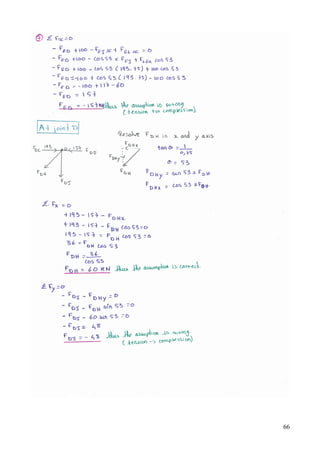 ③ Σ Fx=0
- FED +100 - FEJ x + FEH x = 0
- FED +100 - cos 53 x FEJ + FEH x cos 53
- FED +100 - cos 53 (193,75) + 100 cos 53
- FED = -100 + cos 53 (193,75) - 100 cos 53
- FED = -100 + 117 - 60
- FED = 157
FED = - 157 thus the assumption is wrong
(tension → compression)
At joint D
Resolve FDH in x and y axis
FDC 193 D -157 FDE
FDHx
FDHy
tan θ = 1
0,75
FDH
FDJ
FDH
θ = 53
FDHy = sin 53 x FDH
FDHx = cos 53 x FDH
Σ Fx = 0
+ 193 - 157 - FDHx
+ 193 - 157 - FDH cos 53=0
193 - 157 = FDH cos 53 =0
36 - FDH cos 53
FDH = 36
cos 53
FDH = 60 KN thus the assumption is correct
Σ Fy =0
- FDJ - FDHy = 0
- FDJ - FDH sin 53 =0
- FDJ - 60 sin 53 =0
- FDJ = 48
FDJ = - 48 thus the assumption is wrong
(tension → compression)
66